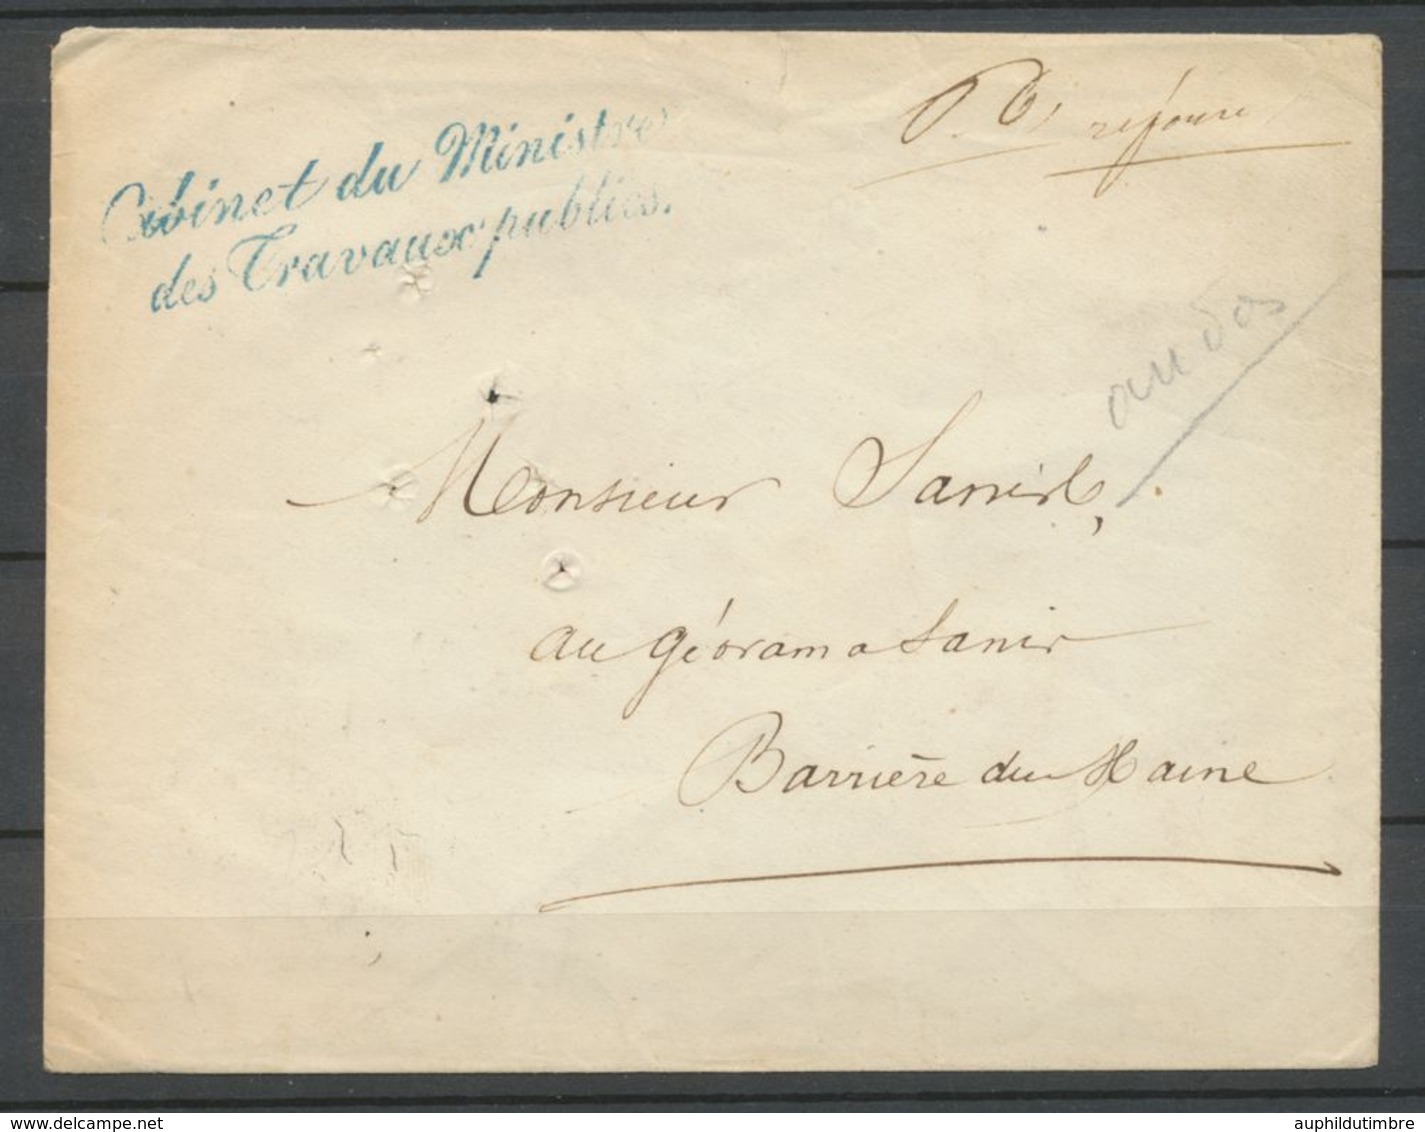 Cabinet du Ministre
des Travaux publics.
réponse
au dos
Monsieur Sanis,
au Géorama Sanis
Barrière du Maine
www.delcampe.net
auphildutimbre